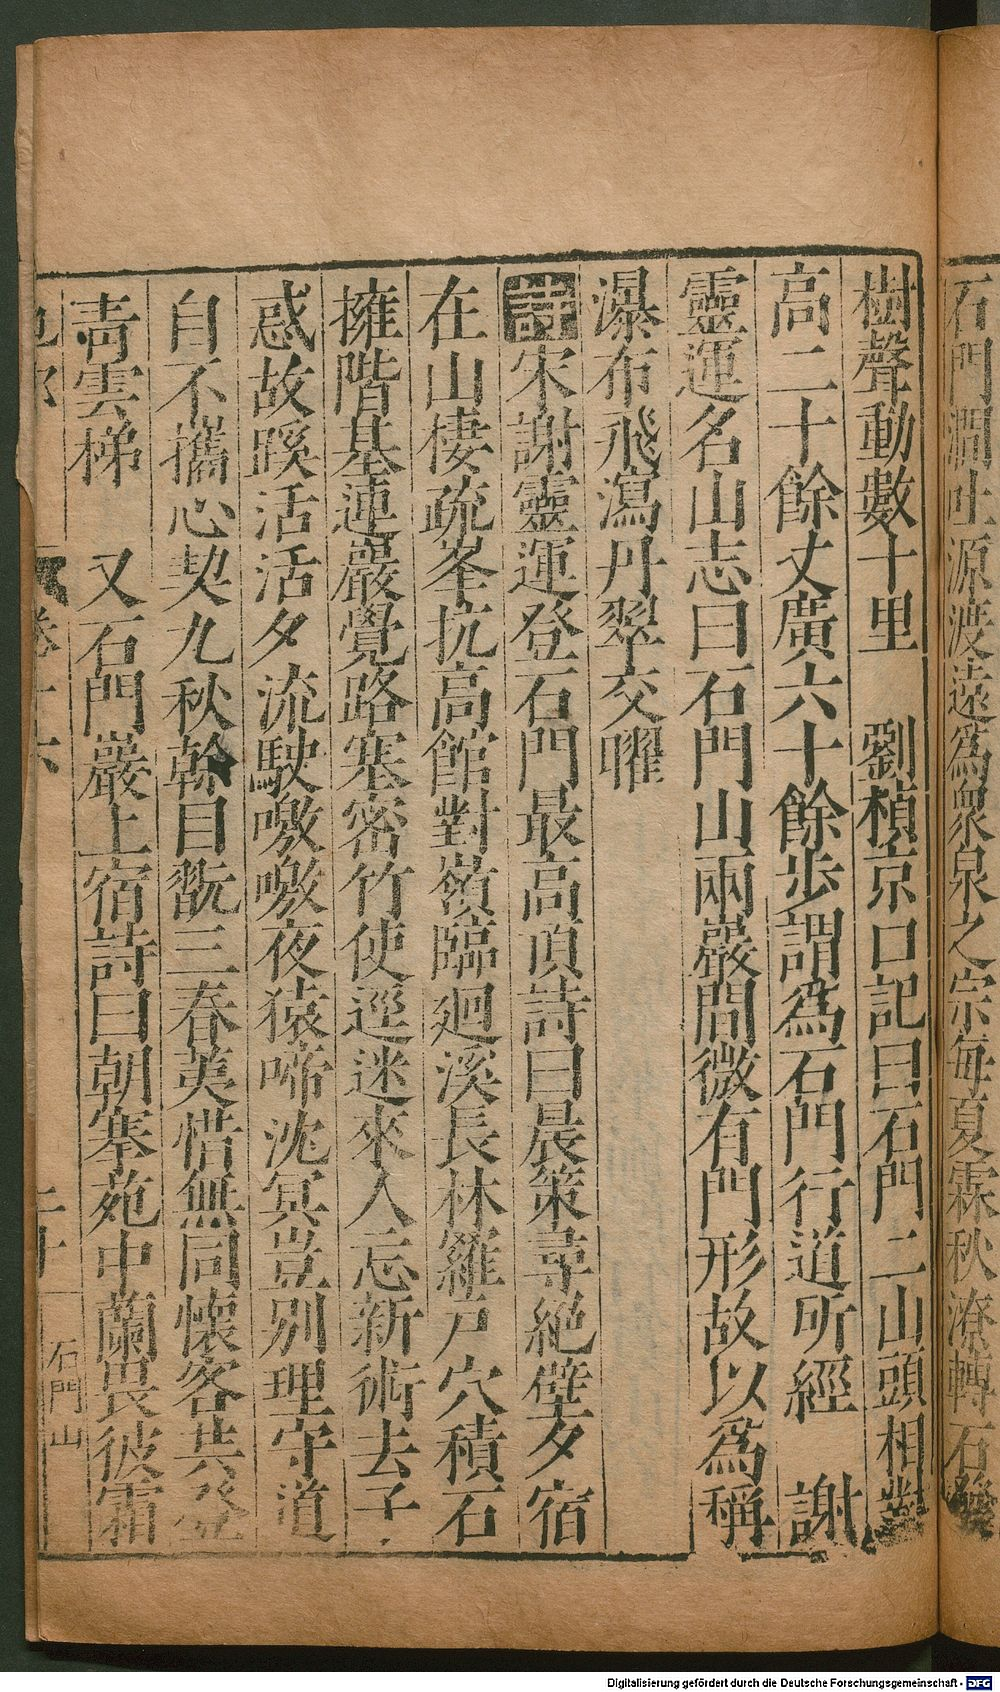 石門澗吐源渡遠爲衆泉之宗每夏霖秋潦轉石發
樹聲動數十里　劉楨京口記曰石門二山頭相對
高二十餘丈廣六十餘步謂爲石門行道所經　謝
靈運名山志曰石門山兩巖間微有門形故以爲稱
瀑布飛瀉丹翠交曜
詩宋謝靈運登石門最高頂詩曰晨策尋絕壁夕宿
在山棲疏峯抗高館對嶺臨廻溪長林羅戸穴積石
擁階基連巖覺路塞密竹使逕迷來人忘新術去子
惑故蹊活活夕流駛噭噭夜猿啼沈冥豈別理守道
自不攜心契九秋榦目翫三春荑惜無同懷客共登
靑雲梯　又石門巖上宿詩曰朝搴苑中蘭畏彼霜
卷六
石門山
Digitalisierung gefördert durch die Deutsche Forschungsgemeinschaft - DFG